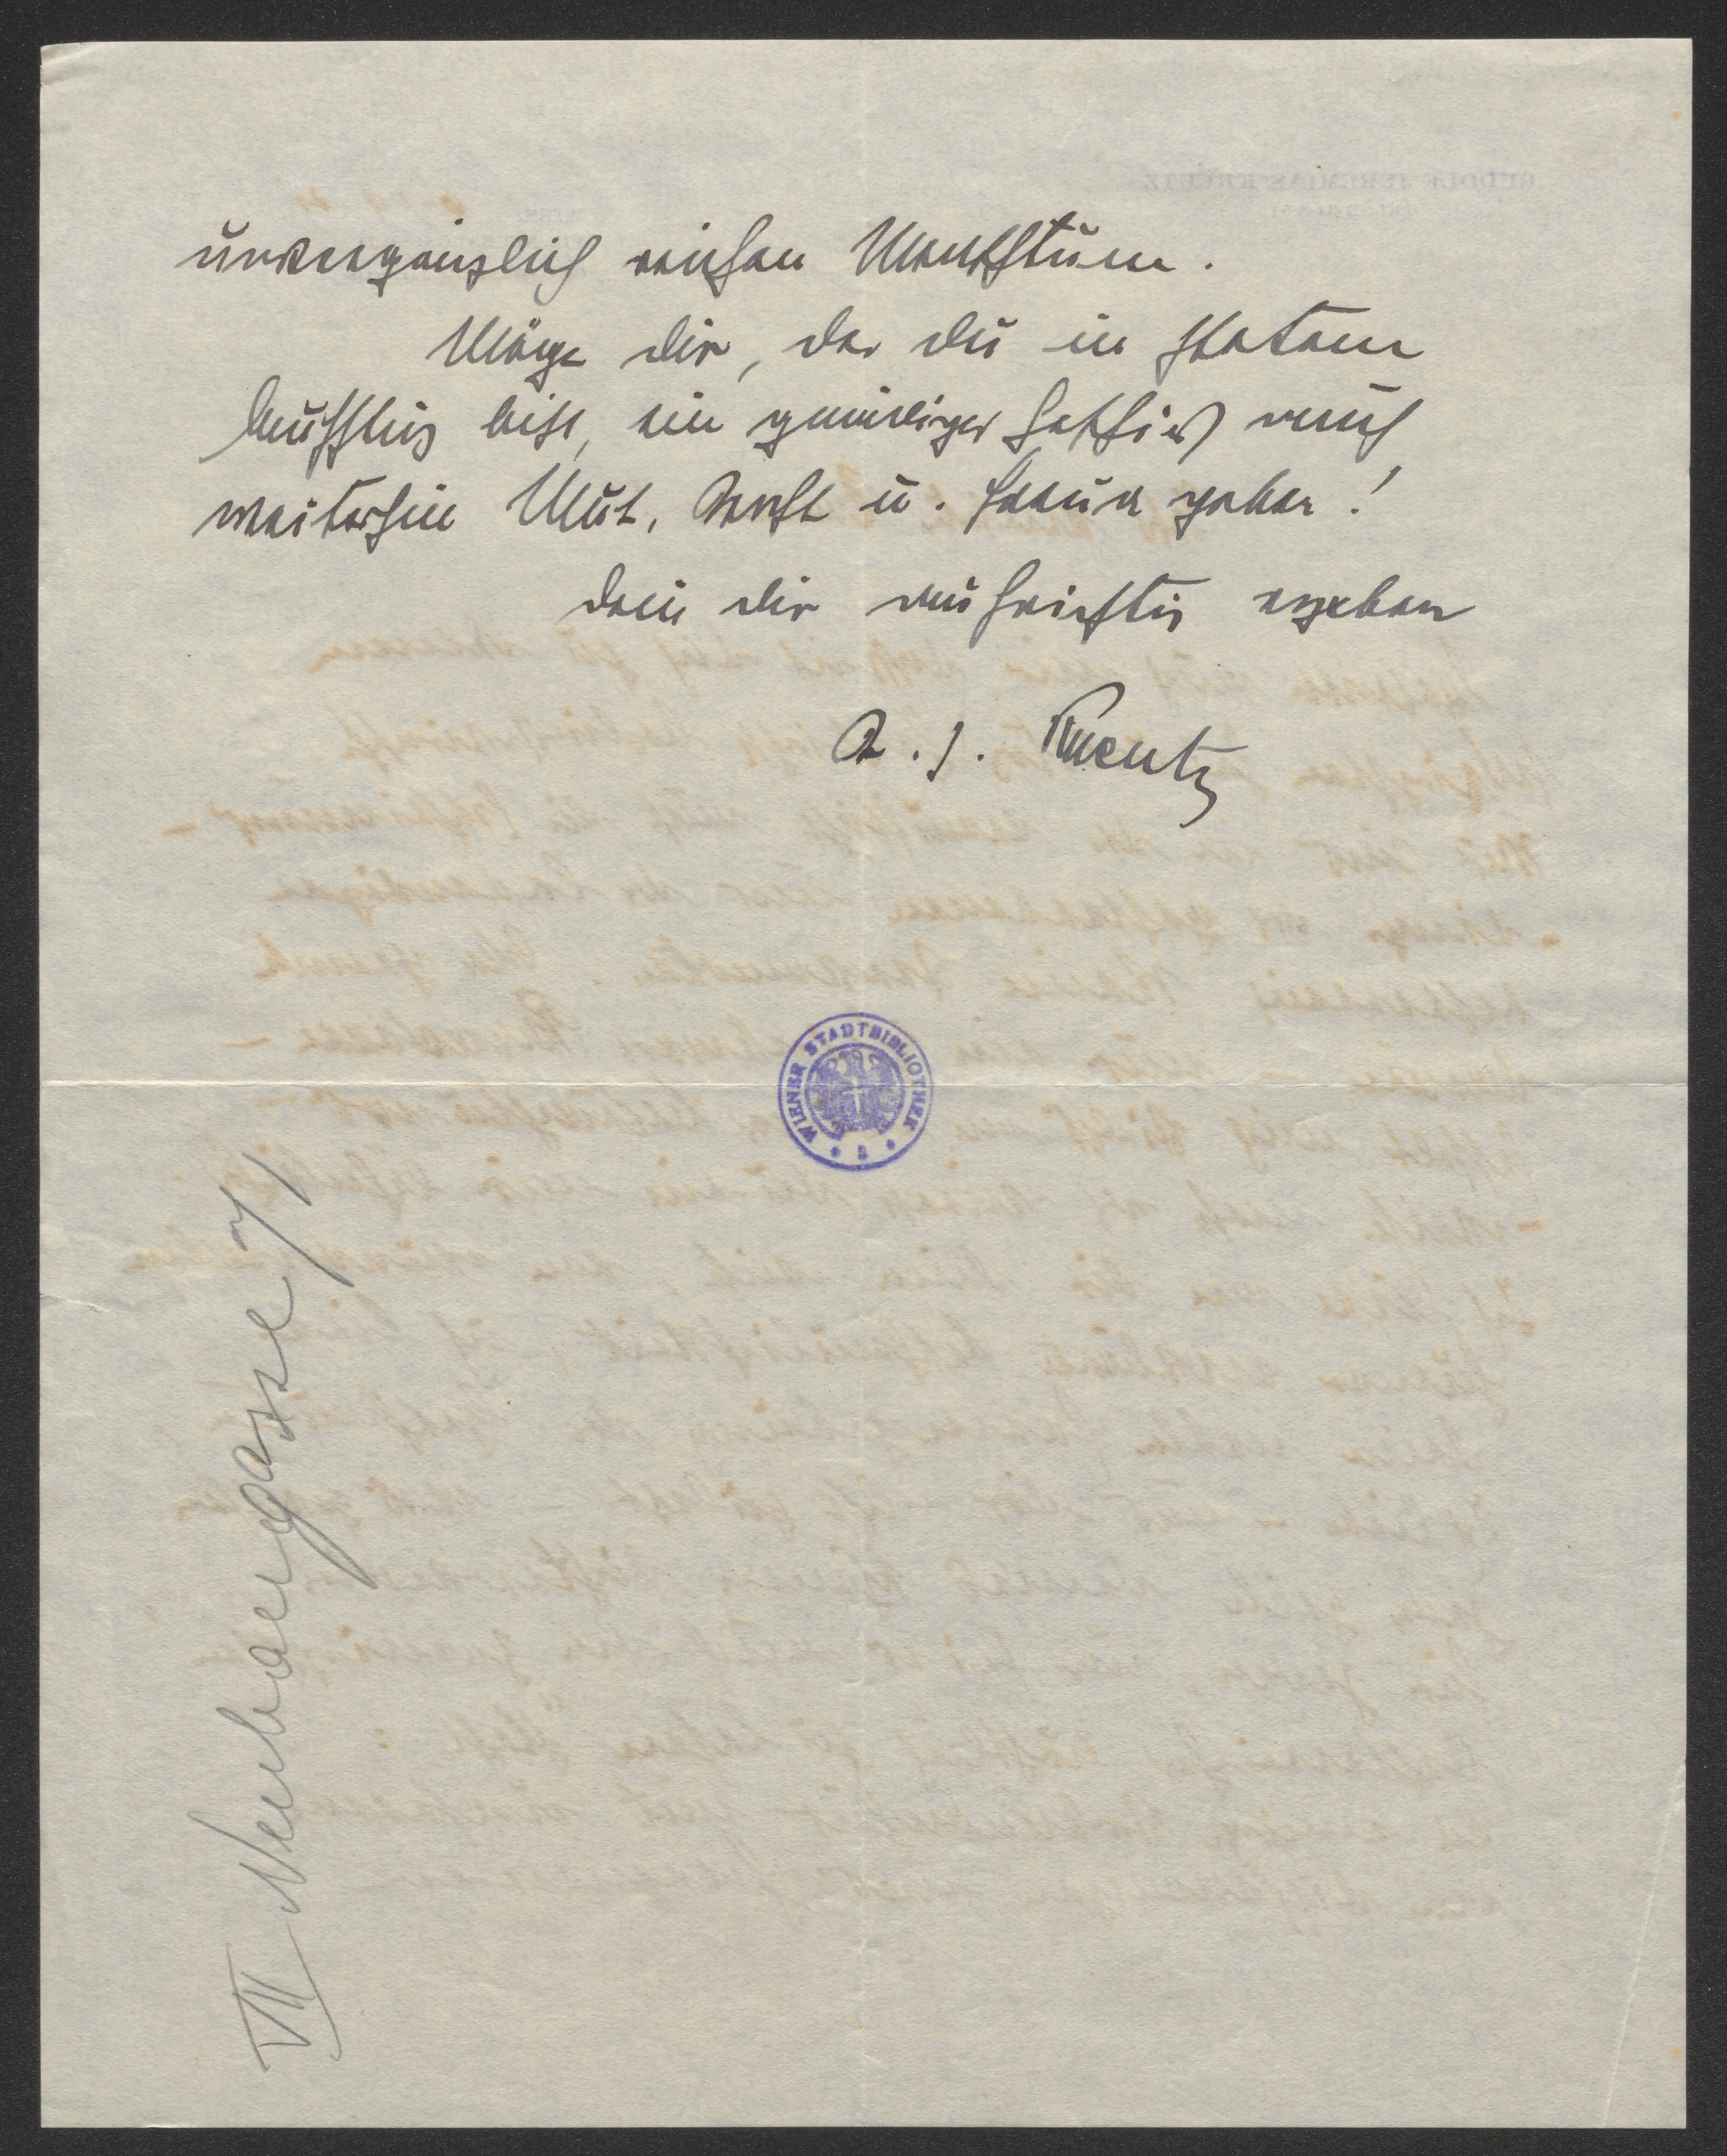 unvergänglich reichen Menschtum.
Möge dir, der du in stetem
Aufstieg bist, ein gnädiges Geschick auch
weiterhin Mut, Kraft u. Freude geben!
Dein dir aufrichtig ergeben
R. J. Kreutz
WIENER STADTBIBLIOTHEK
VII Neubaugasse 71